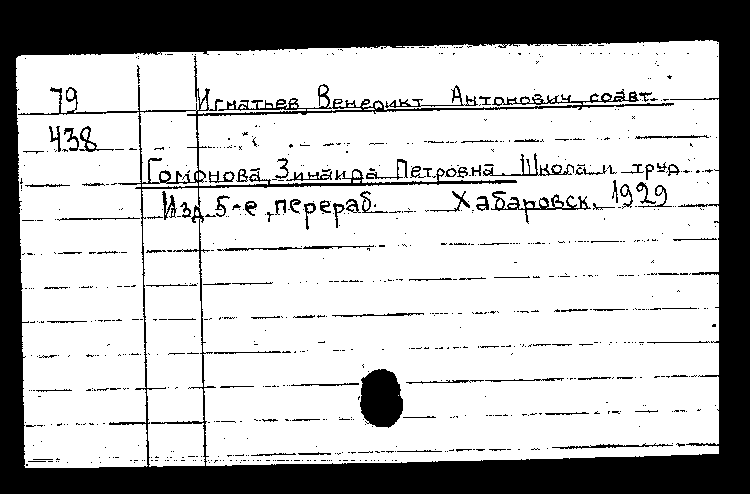 79 Игнатьев Венедикт Антонович, соавт.
438
Гомонова, Зинаида Петровна. Школа и труд.
Изд. 5-е, перераб. Хабаровск. 1929